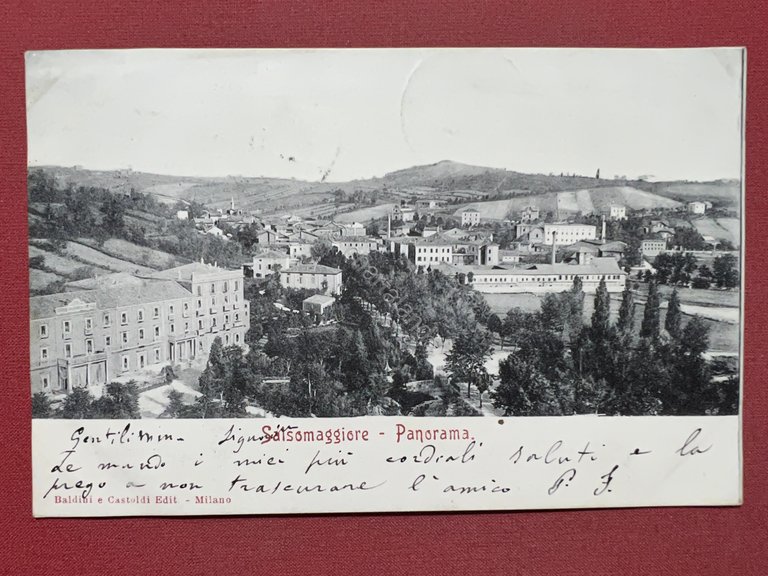 Salsomaggiore - Panorama.
Gentilissima Signora
Le mando i miei più cordiali saluti e la
prego a non trascurare l'amico P. J.
Baldini e Castoldi Edit. - Milano